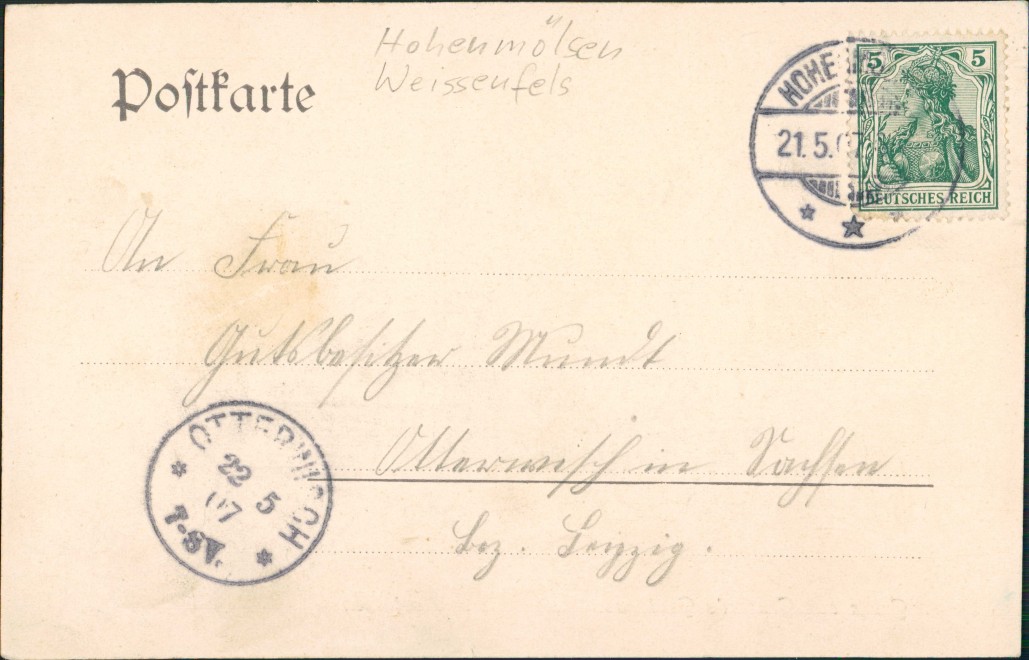 Hohenmölsen
Weissenfels
Postkarte
HOHE
21.5.07
5 5
DEUTSCHES REICH
An Frau
Gutsbesitzer Mundt
Otterwisch in Sachsen
Bez. Leipzig.
OTTERWISCH
22 5
07
7-8V.